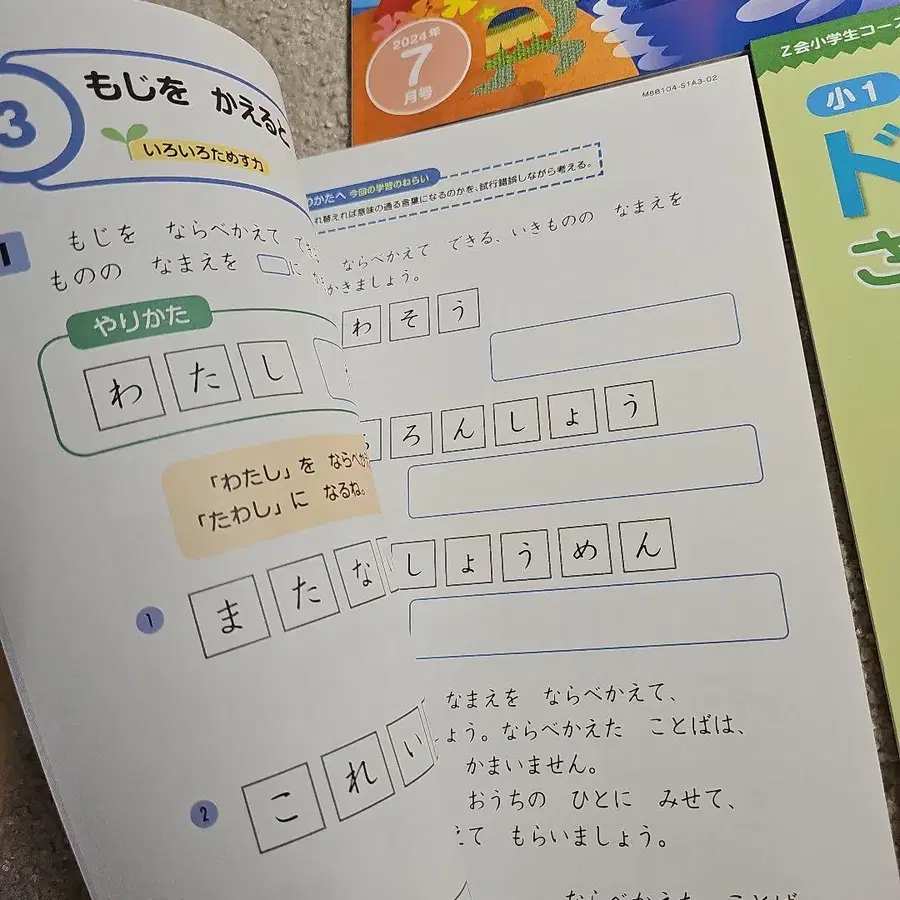 3
もじを かえると
いろいろためす力
1
もじを ならべかえて
ものの なまえを
やりかた
わ た し
「わたし」を ならべか
「たわし」に なるね。
1
ま た な
2
こ れ い
2024年
7
月号
Z会小学生コース
小1
ド
さ
M8B104-S1A3-02
のかたへ 今回の学習のねらい
れ替えれば意味の通る言葉になるのかを、試行錯誤しながら考える。
ならべかえて できる、いきものの なまえを
かきましょう。
わ そ う
ろ ん し ょ う
し ょ う め ん
なまえを ならべかえて、
ょう。ならべかえた ことばは、
かまいません。
おうちの ひとに みせて、
て もらいましょう。
ならべかえた ことば